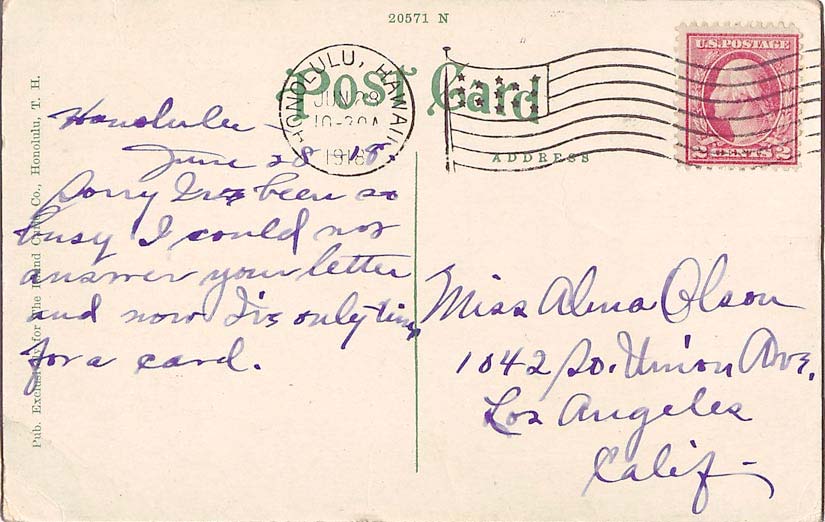 20571 N
Post Card
ADDRESS
HONOLULU, HAWAII
JUN 28
10-30A
1918
U.S. POSTAGE
2 CENTS 2
Honolulu -
June 28 - 18.
Sorry I've been so
busy I could not
answer your letter
and now I've only time
for a card.
Miss Alma Olson
1042 So. Union Ave.
Los Angeles
Calif -
Pub. Exclusively for The Island Curio Co., Honolulu, T. H.